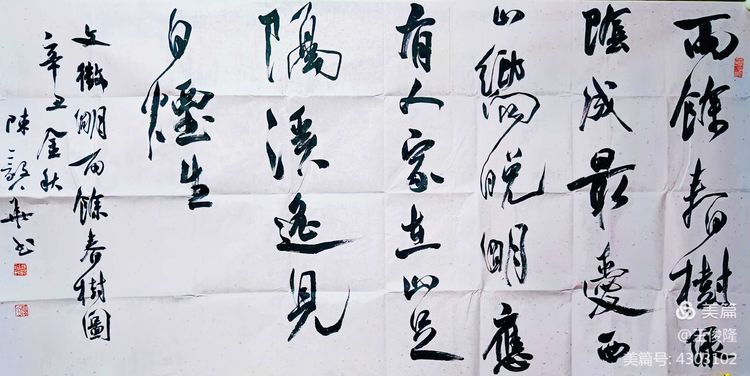 雨餘春樹綠
陰成最愛西
山嚮晚明應
有人家在山足
隔溪遙見
白煙生
文徵明雨餘春樹圖
辛丑金秋
陳 華书
美篇
@王俊隆
美篇号: 4303102